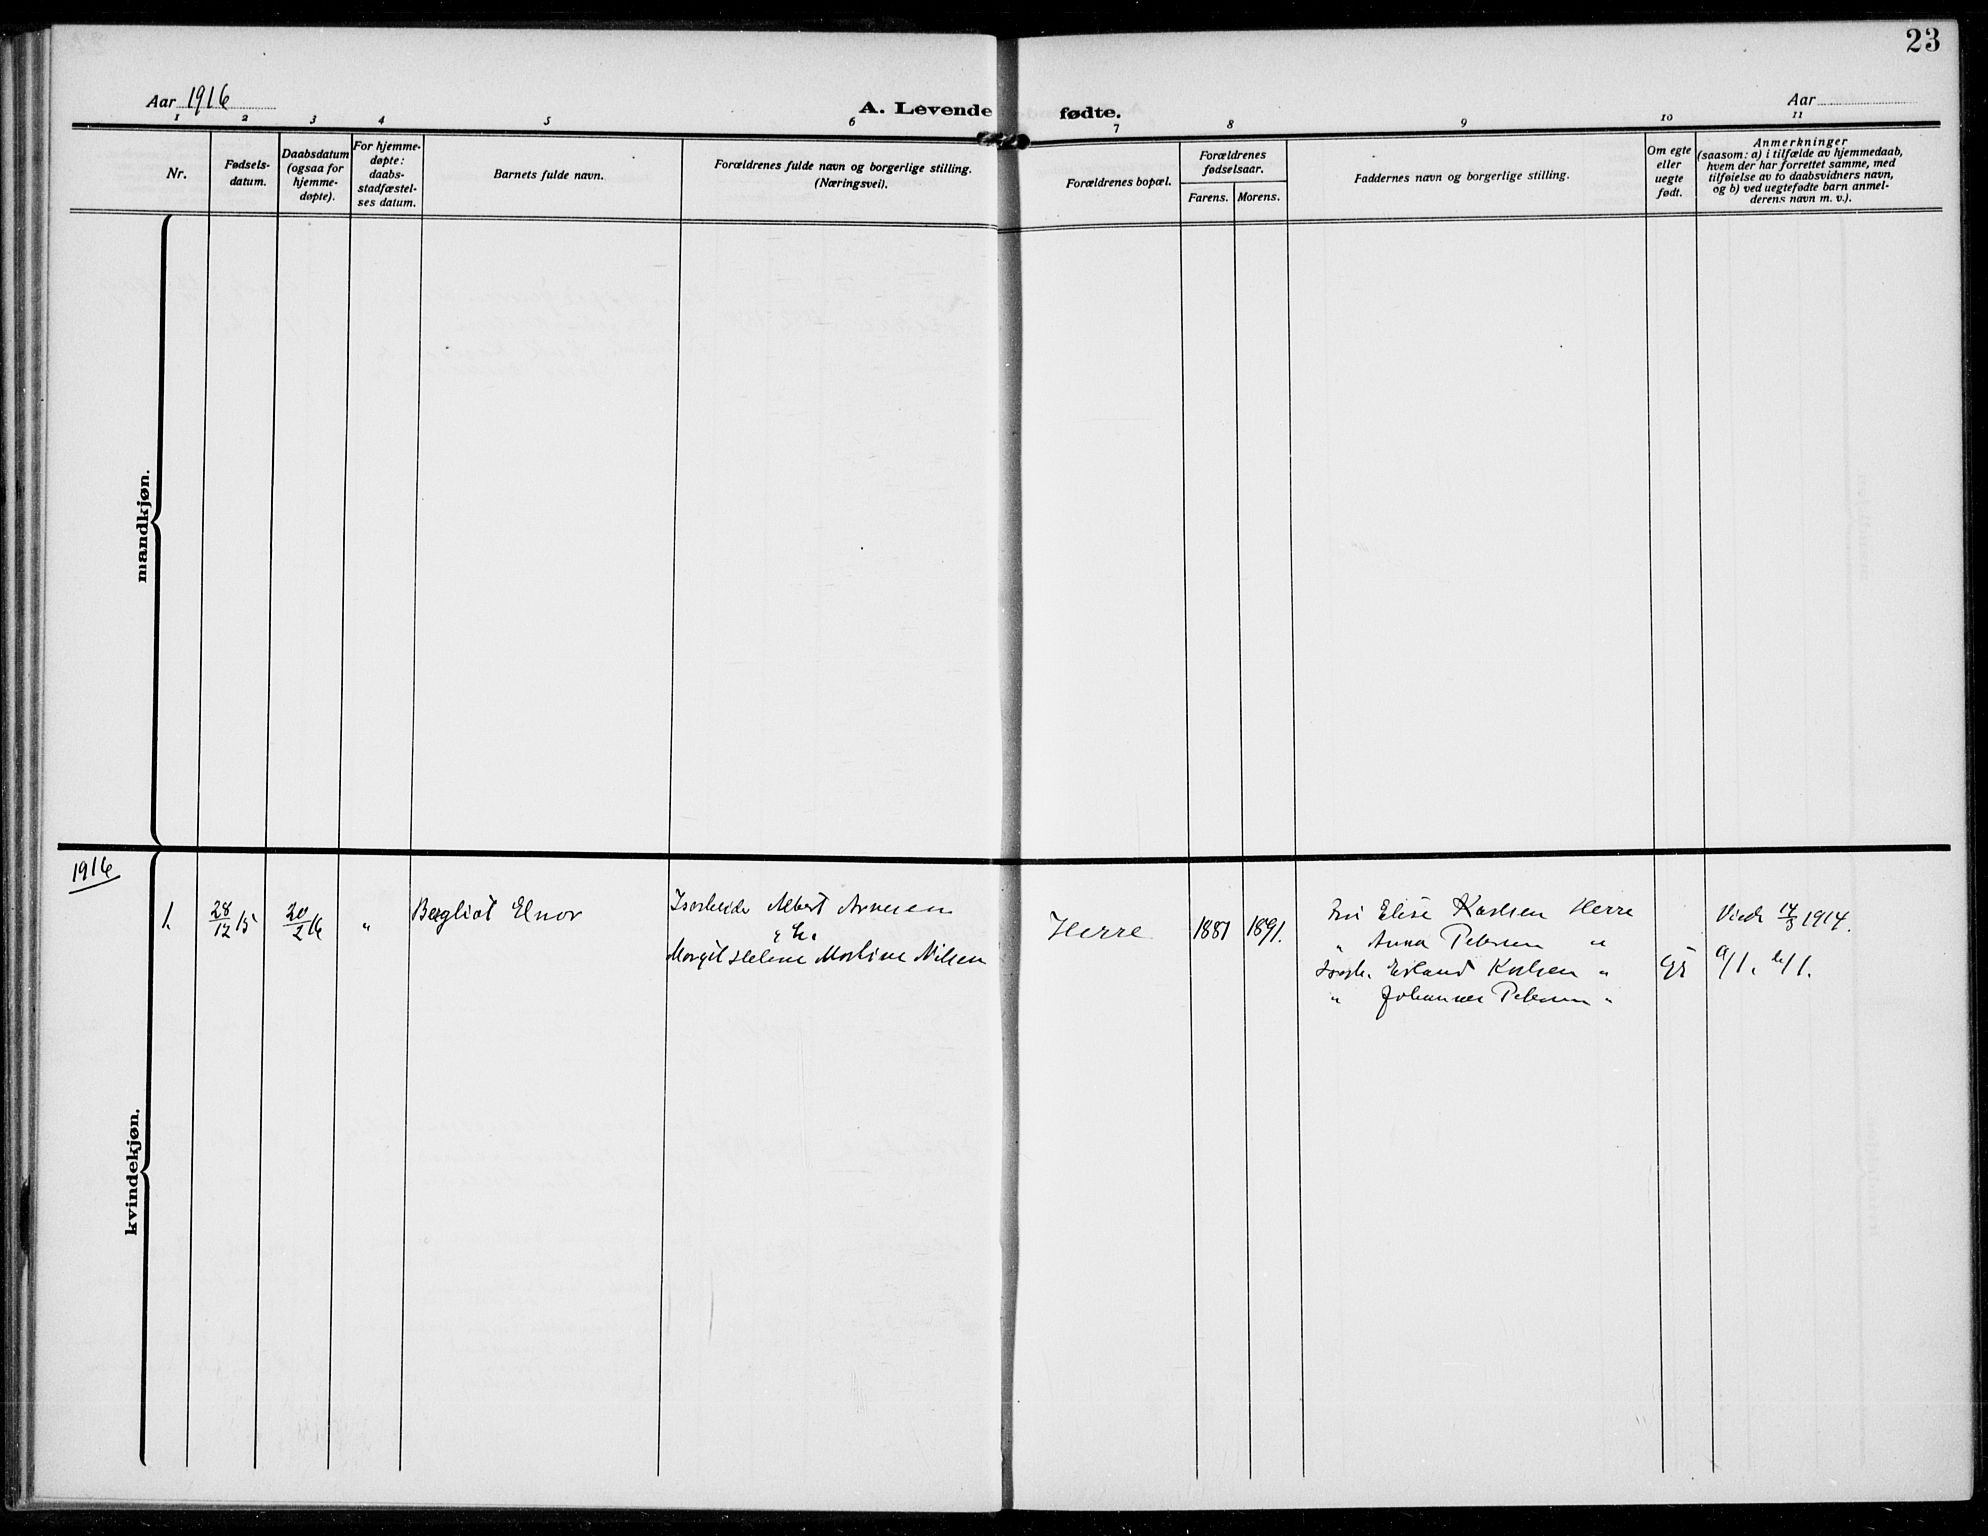 23
Aar 1916
A. Levende fødte.
Aar
1 2 3 4 5 6 7 8 9 10 11
Nr.
Fødsels-
datum.
Daabsdatum
(ogsaa for
hjemme-
døpte).
For hjemme-
døpte:
daabs-
stadfæstel-
ses datum.
Barnets fulde navn.
Forældrenes fulde navn og borgerlige stilling.
(Næringsvei).
Forældrenes bopæl.
Forældrenes
fødselsaar.
Farens. Morens.
Faddernes navn og borgerlige stilling.
Om egte
eller
uegte
født.
Anmerkninger
(saasom: a) i tilfælde av hjemmedaab,
hvem der har forrettet samme, med
tilføielse av to daabsvidners navn,
og b) ved uegtefødte barn anmel-
derens navn m. v.).
mandkjøn.
kvindekjøn.
1916
1. 28/12 15 20/2 16 " Bergliot Elnor
Albert Arnesen
Margit Helene Martine Nilsen
Herre 1881 1891.
Elise Karlsen Herre
" Anna Petersen "
Erland Karlsen "
" Johannes Petersen "
Viede 1914.
a/1. b/1.